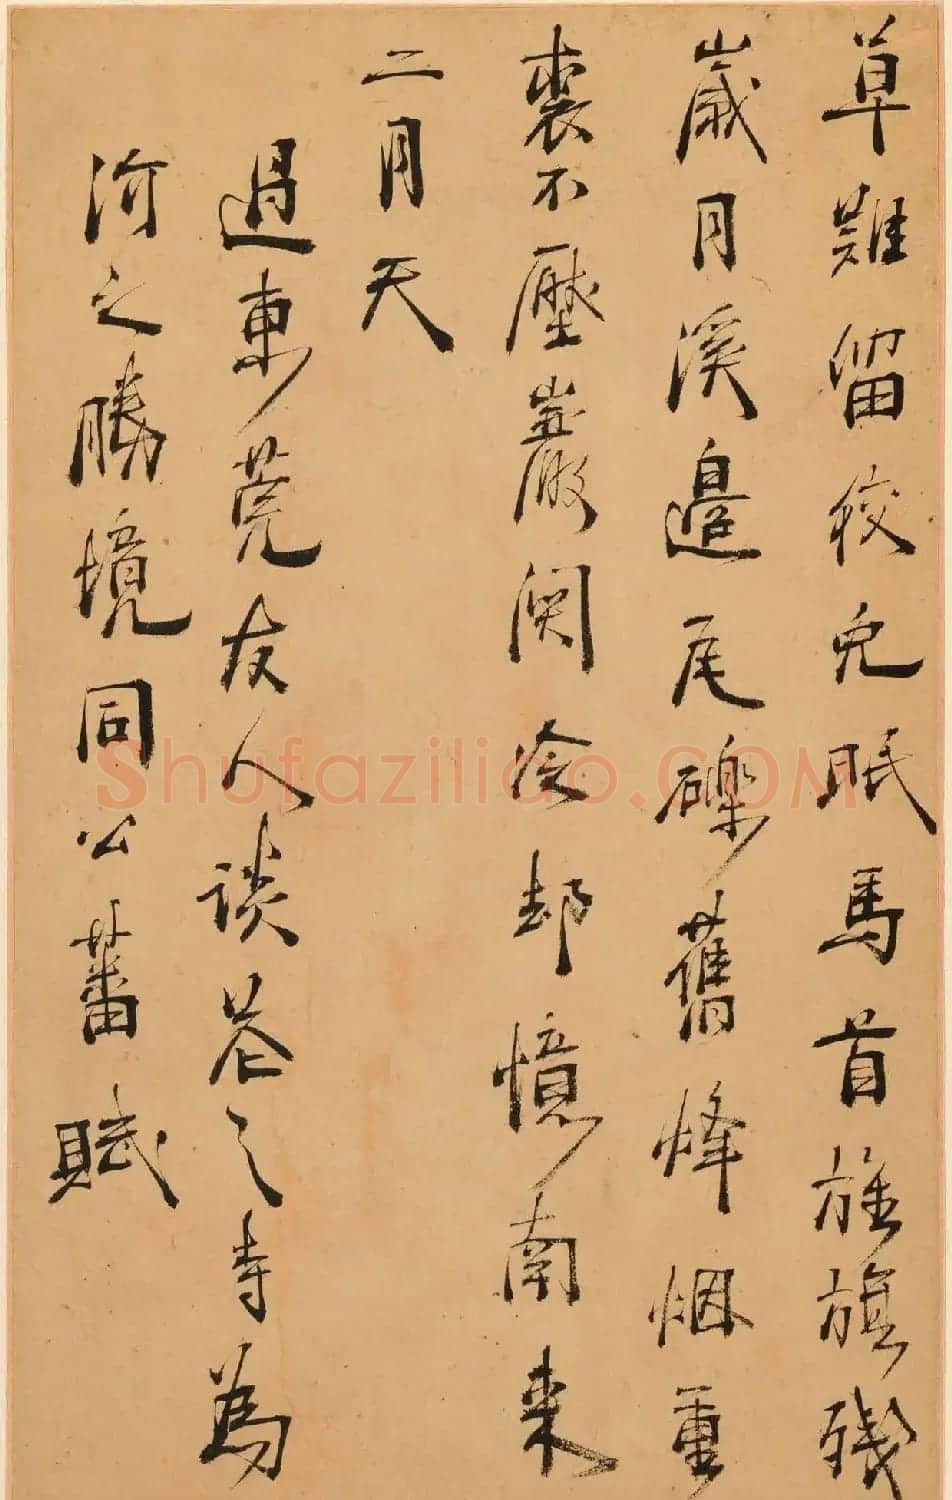 草難留狡兔眠馬首旌旗殘
歲月溪邊瓦礫舊烽烟重
裘不壓巖關冷却憶南來
二月天
過東莞友人談茶之寺為
河之勝境同公蕃賦
Shufaziliao.COM